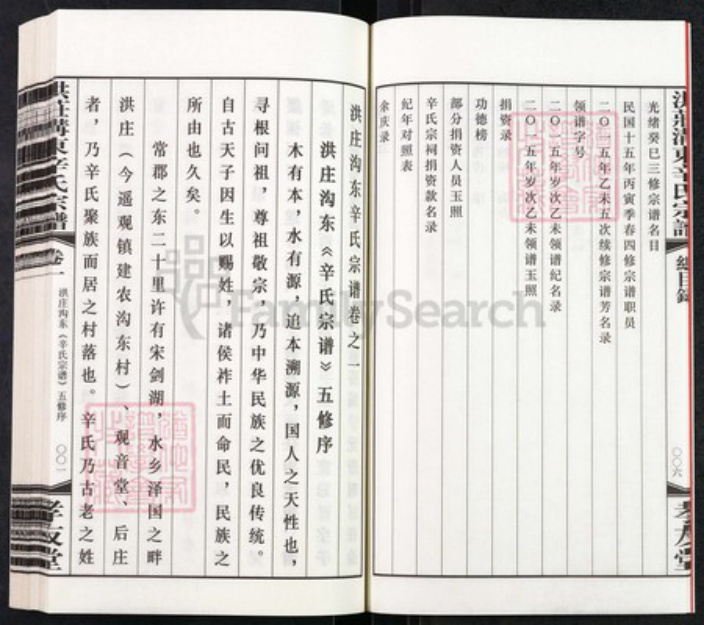 洪庄沟东辛氏宗谱
总目录
〇〇六
孝友堂
光绪癸巳三修宗谱名目
民国十五年丙寅季春四修宗谱职员
二〇一五年乙未五次续修宗谱芳名录
领谱字号
二〇一五年岁次乙未领谱纪名录
二〇一五年岁次乙未领谱玉照
捐资录
功德榜
部分捐资人员玉照
辛氏宗祠捐资款名录
纪年对照表
余庆录
洪庄沟东辛氏宗谱卷之一
洪庄沟东《辛氏宗谱》五修序
木有本，水有源，追本溯源，国人之天性也，
寻根问祖，尊祖敬宗，乃中华民族之优良传统。
自古天子因生以赐姓，诸侯祚土而命民，民族之
所由也久矣。
常郡之东二十里许有宋剑湖，水乡泽国之畔
洪庄（今遥观镇建农沟东村）、观音堂、后庄
者，乃辛氏聚族而居之村落也。辛氏乃古老之姓
洪莊溝東辛氏宗譜
卷一
洪庄沟东《辛氏宗谱》五修序
〇〇一
孝友堂
FamilySearch